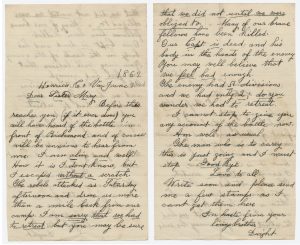 1864
Henrico Co Va June 3
Dear Sister Mary
Before this
reaches you (if it ever does) you
will have heard of the battle in
front of Richmond and of course
will be anxious to hear from
me. I am alive and well!
How it is I dont know, but
I escaped without a scratch.
The rebels attacked us Saturday
afternoon and drove us more
than a mile back from our
camp. I am sorry that we had
to retreat but you may be sure
that we did not until we were
obliged to. Many of our brave
fellows have been killed.
Our Capt is dead and his
body in the hands of the enemy
You may well believe that
we feel bad enough
The enemy had 5 divisions
and we had only 1 do you
wonder we had to retreat
I cannot stop to give you
any account of the battle now
Am well as usual
The man who is to carry
this is just going and I must
say Good bye
Love to all
Write soon and please send
me a few stamps as I
cant get them here
In haste from your
loving brother
Dwight